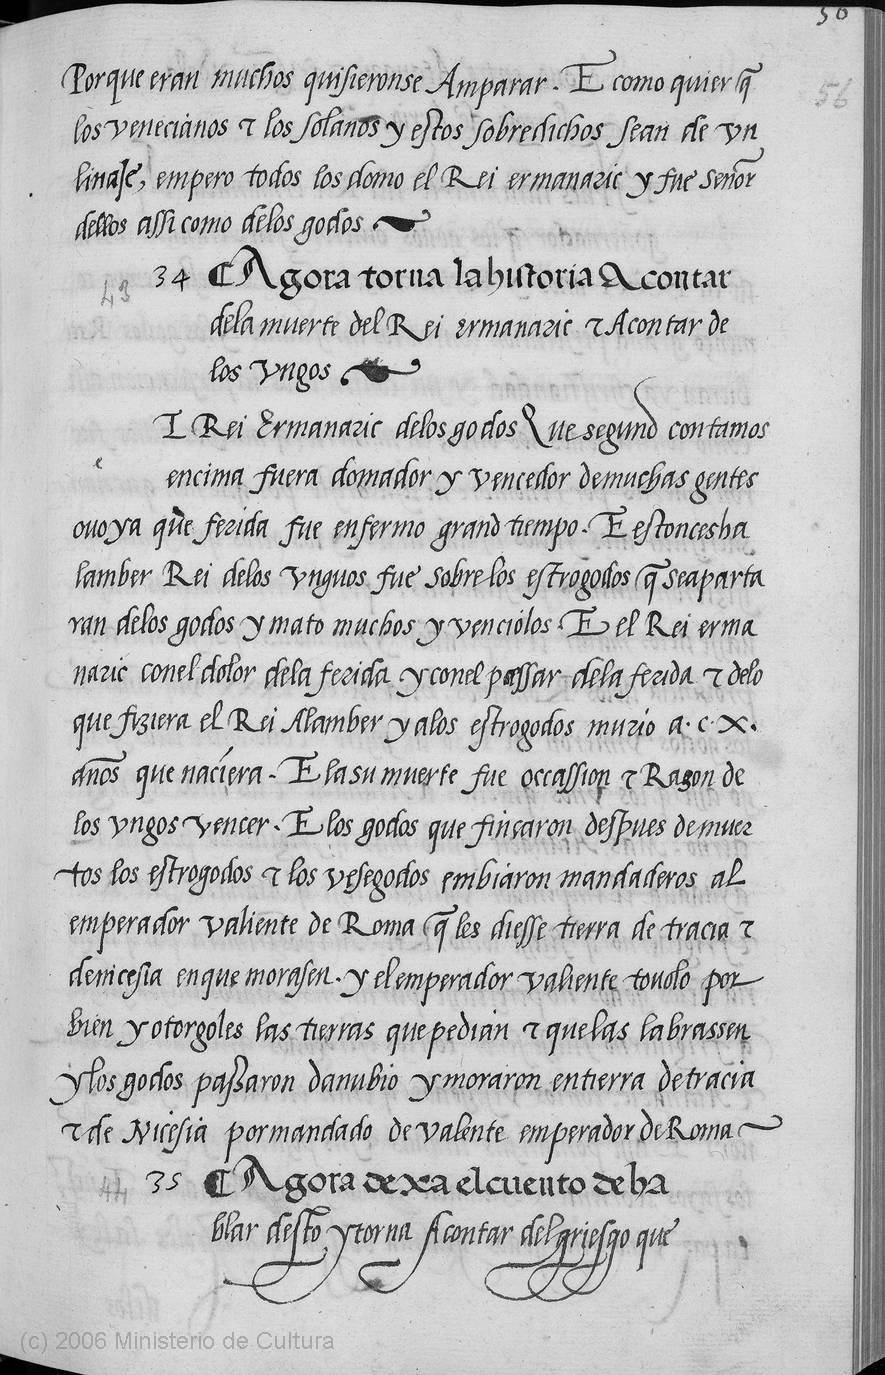 56
56
Porque eran muchos quisieronse Amparar. E como quier q̃
los venecianos τ los solanos y estos sobredichos sean de vn
linaje, empero todos los domo el Rei ermanaric y fue señor
dellos assi como delos godos
43 34 ¶ Agora torna la historia A contar
dela muerte del Rei ermanaric τ A contar de
los vngos
L Rei Ermanaric delos godos Que segund contamos
e encima fuera domador y vencedor de muchas gentes
ouo ya que ferida fue enfermo grand tiempo. E estonces ba
lamber Rei delos vnguos fue sobre los estrogodos q̃ se aparta
ran delos godos y mato muchos y venciolos. E el Rei erma
naric con el dolor dela ferida y con el pessar dela ferida τ delo
que fiziera el Rei Alamber y alos estrogodos murio a. c. X.
años que naciera. E la su muerte fue occassion τ Razon de
los vngos vencer. E los godos que fincaron despues de muer
tos los estrogodos τ los vesegodos embiaron mandaderos al
emperador valiente de Roma q̃ les diesse tierra de tracia τ
de nicesia en que morasen. y el emperador valiente touolo por
bien y otorgoles las tierras que pedian τ que las labrassen
y los godos passaron danubio y moraron en tierra de tracia
τ de Nicesia por mandado de valente emperador de Roma
44 35 ¶ Agora dexa el cuento de ha
blar desto y torna A contar del griesgo que
(c) 2006 Ministerio de Cultura